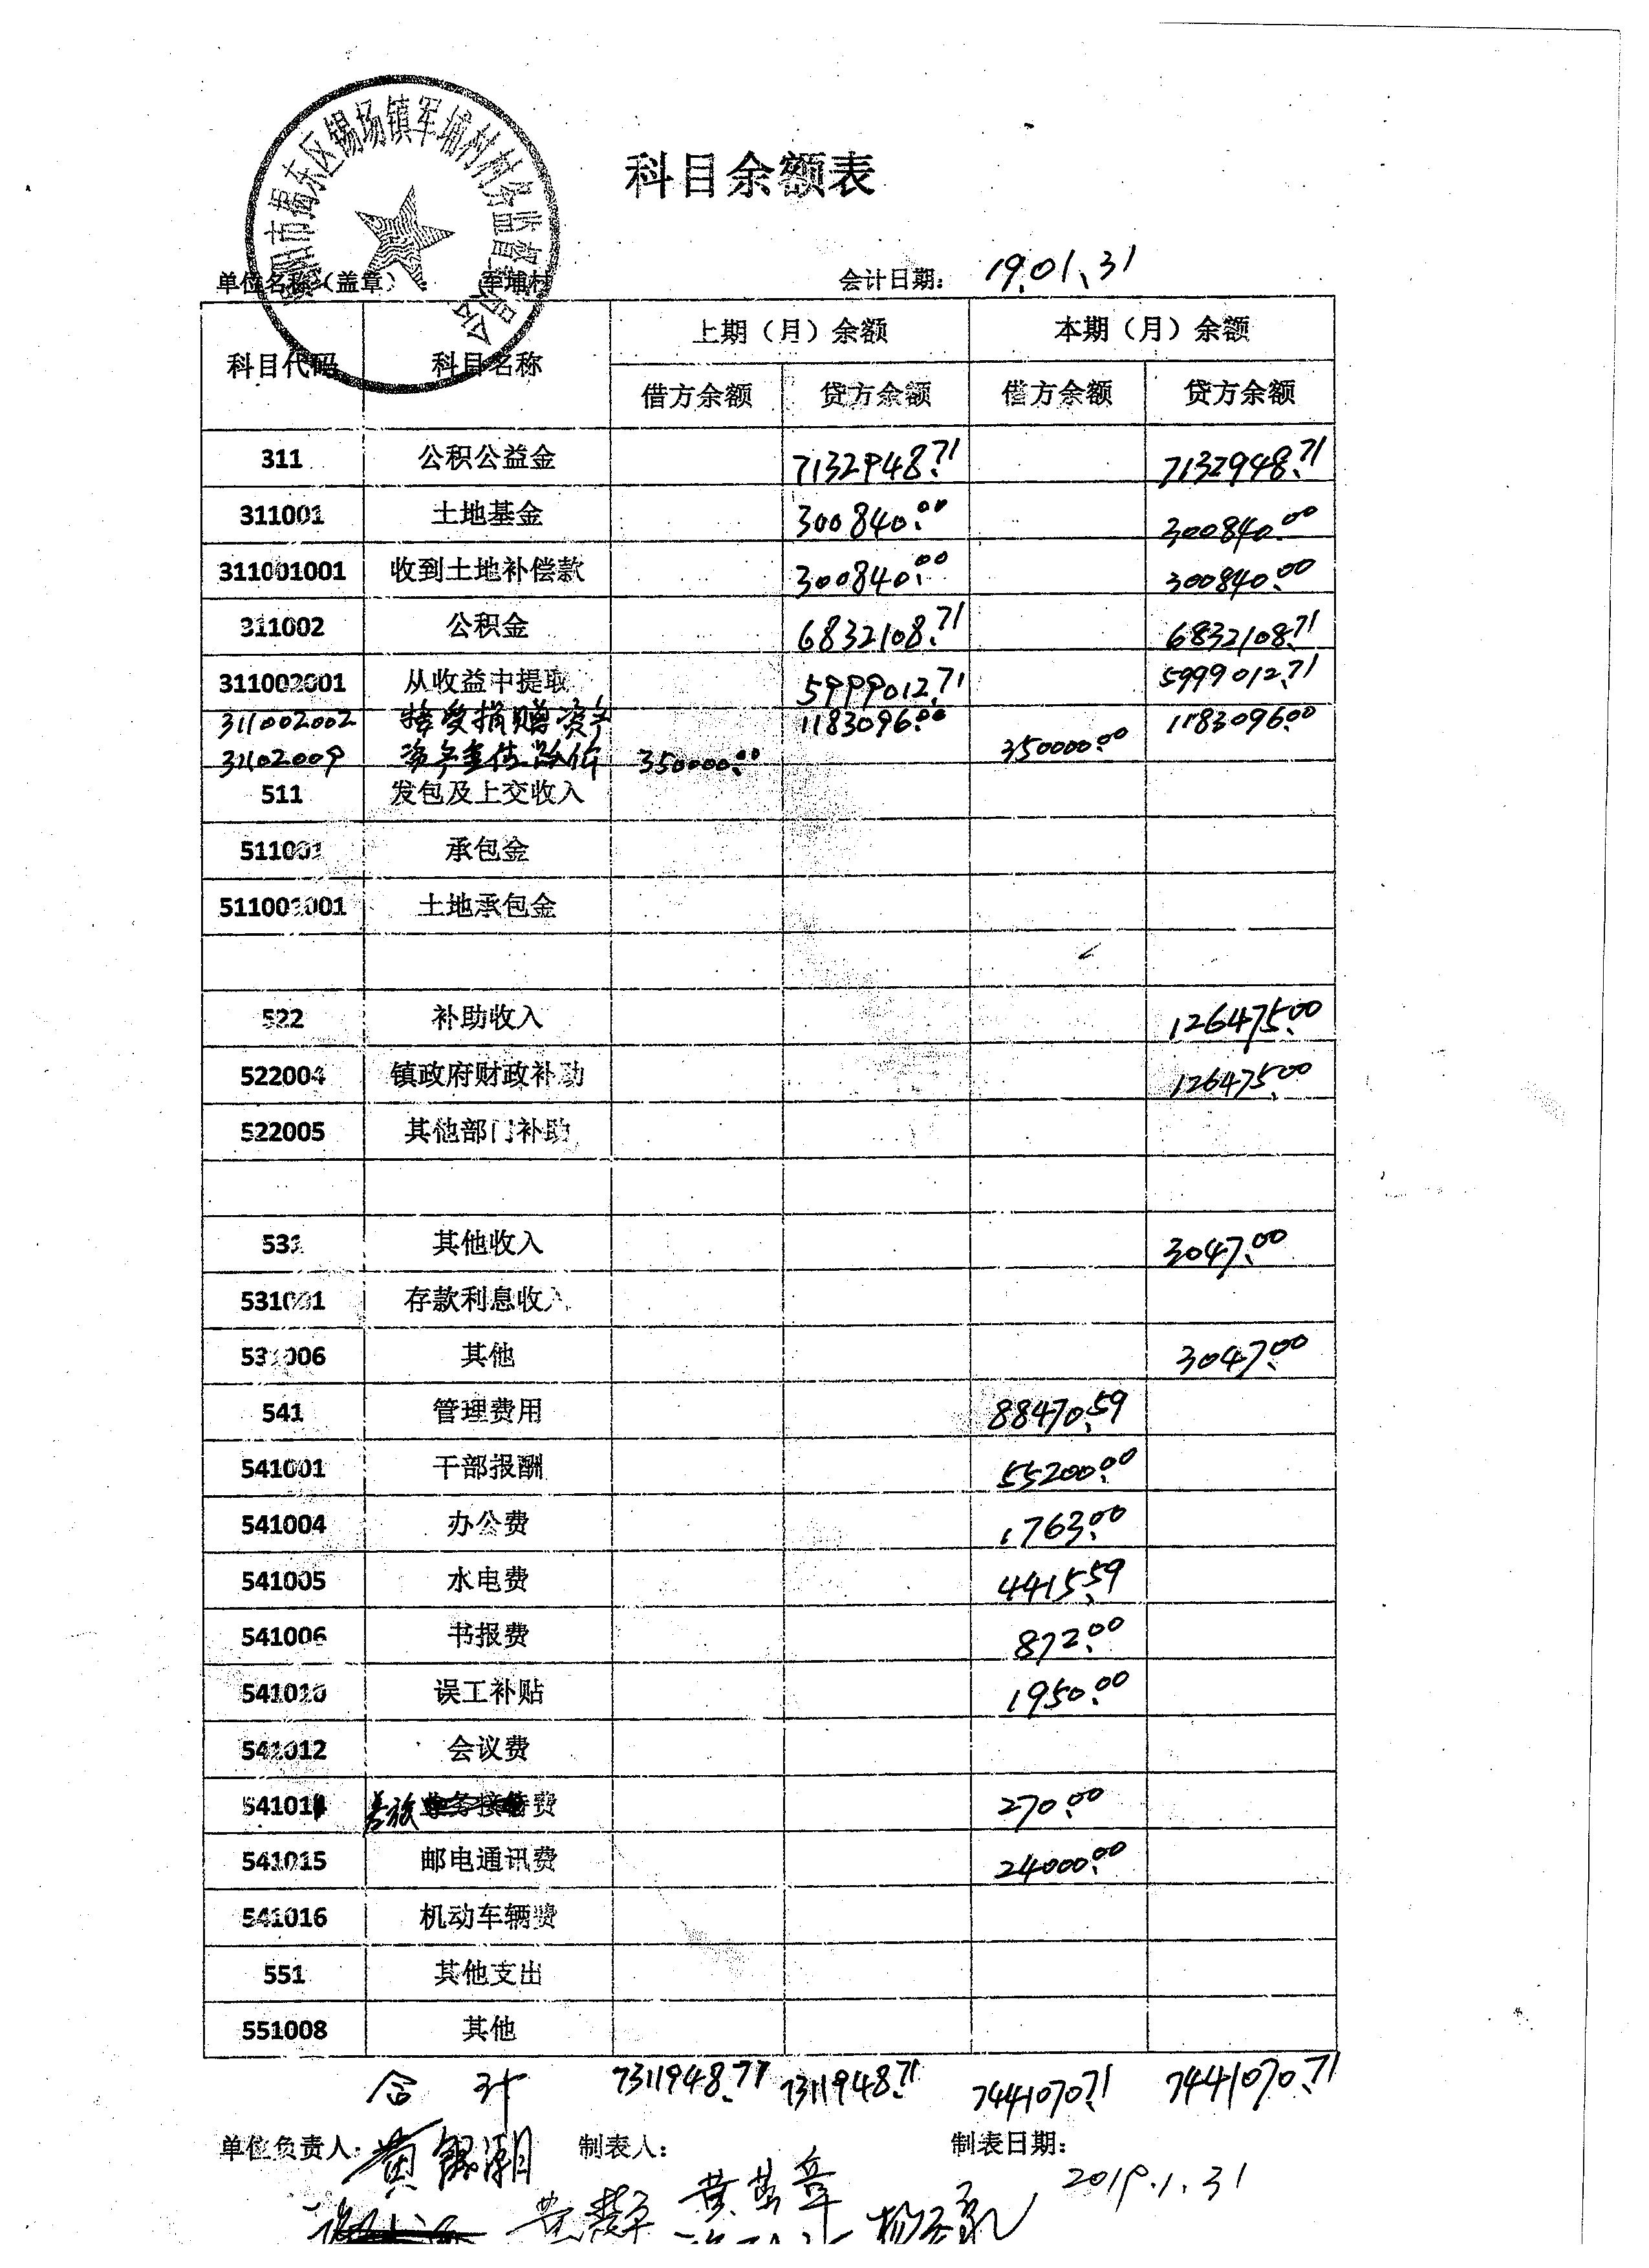 市揭东区锡场镇军埔村村务监督委员会
科目余额表
单位名称(盖章): 军埔村 会计日期: 19.01.31
科目代码 科目名称 上期(月)余额 本期(月)余额
借方余额 贷方余额 借方余额 贷方余额
311 公积公益金 7132948.71 7132948.71
311001 土地基金 300840.00 300840.00
311001001 收到土地补偿款 300840.00 300840.00
311002 公积金 6832108.71 6832108.71
311002001 从收益中提取 5999012.71 5999012.71
311002002 接受捐赠资产 1183096.00 1183096.00
31102009 350000.00 350000.00
511 发包及上交收入
511001 承包金
511001001 土地承包金
522 补助收入 126475.00
522004 镇政府财政补助 126475.00
522005 其他部门补助
531 其他收入 3047.00
531001 存款利息收入
531006 其他 3047.00
541 管理费用 88470.59
541001 干部报酬 55200.00
541004 办公费 1763.00
541005 水电费 4415.59
541006 书报费 872.00
541010 误工补贴 1950.00
541012 会议费
541011 差旅费 270.00
541015 邮电通讯费 24000.00
541016 机动车辆费
551 其他支出
551008 其他
合计 7311948.71 7311948.71 7441070.71 7441070.71
单位负责人: 黄锡潮 制表人: 制表日期:
2019.1.31